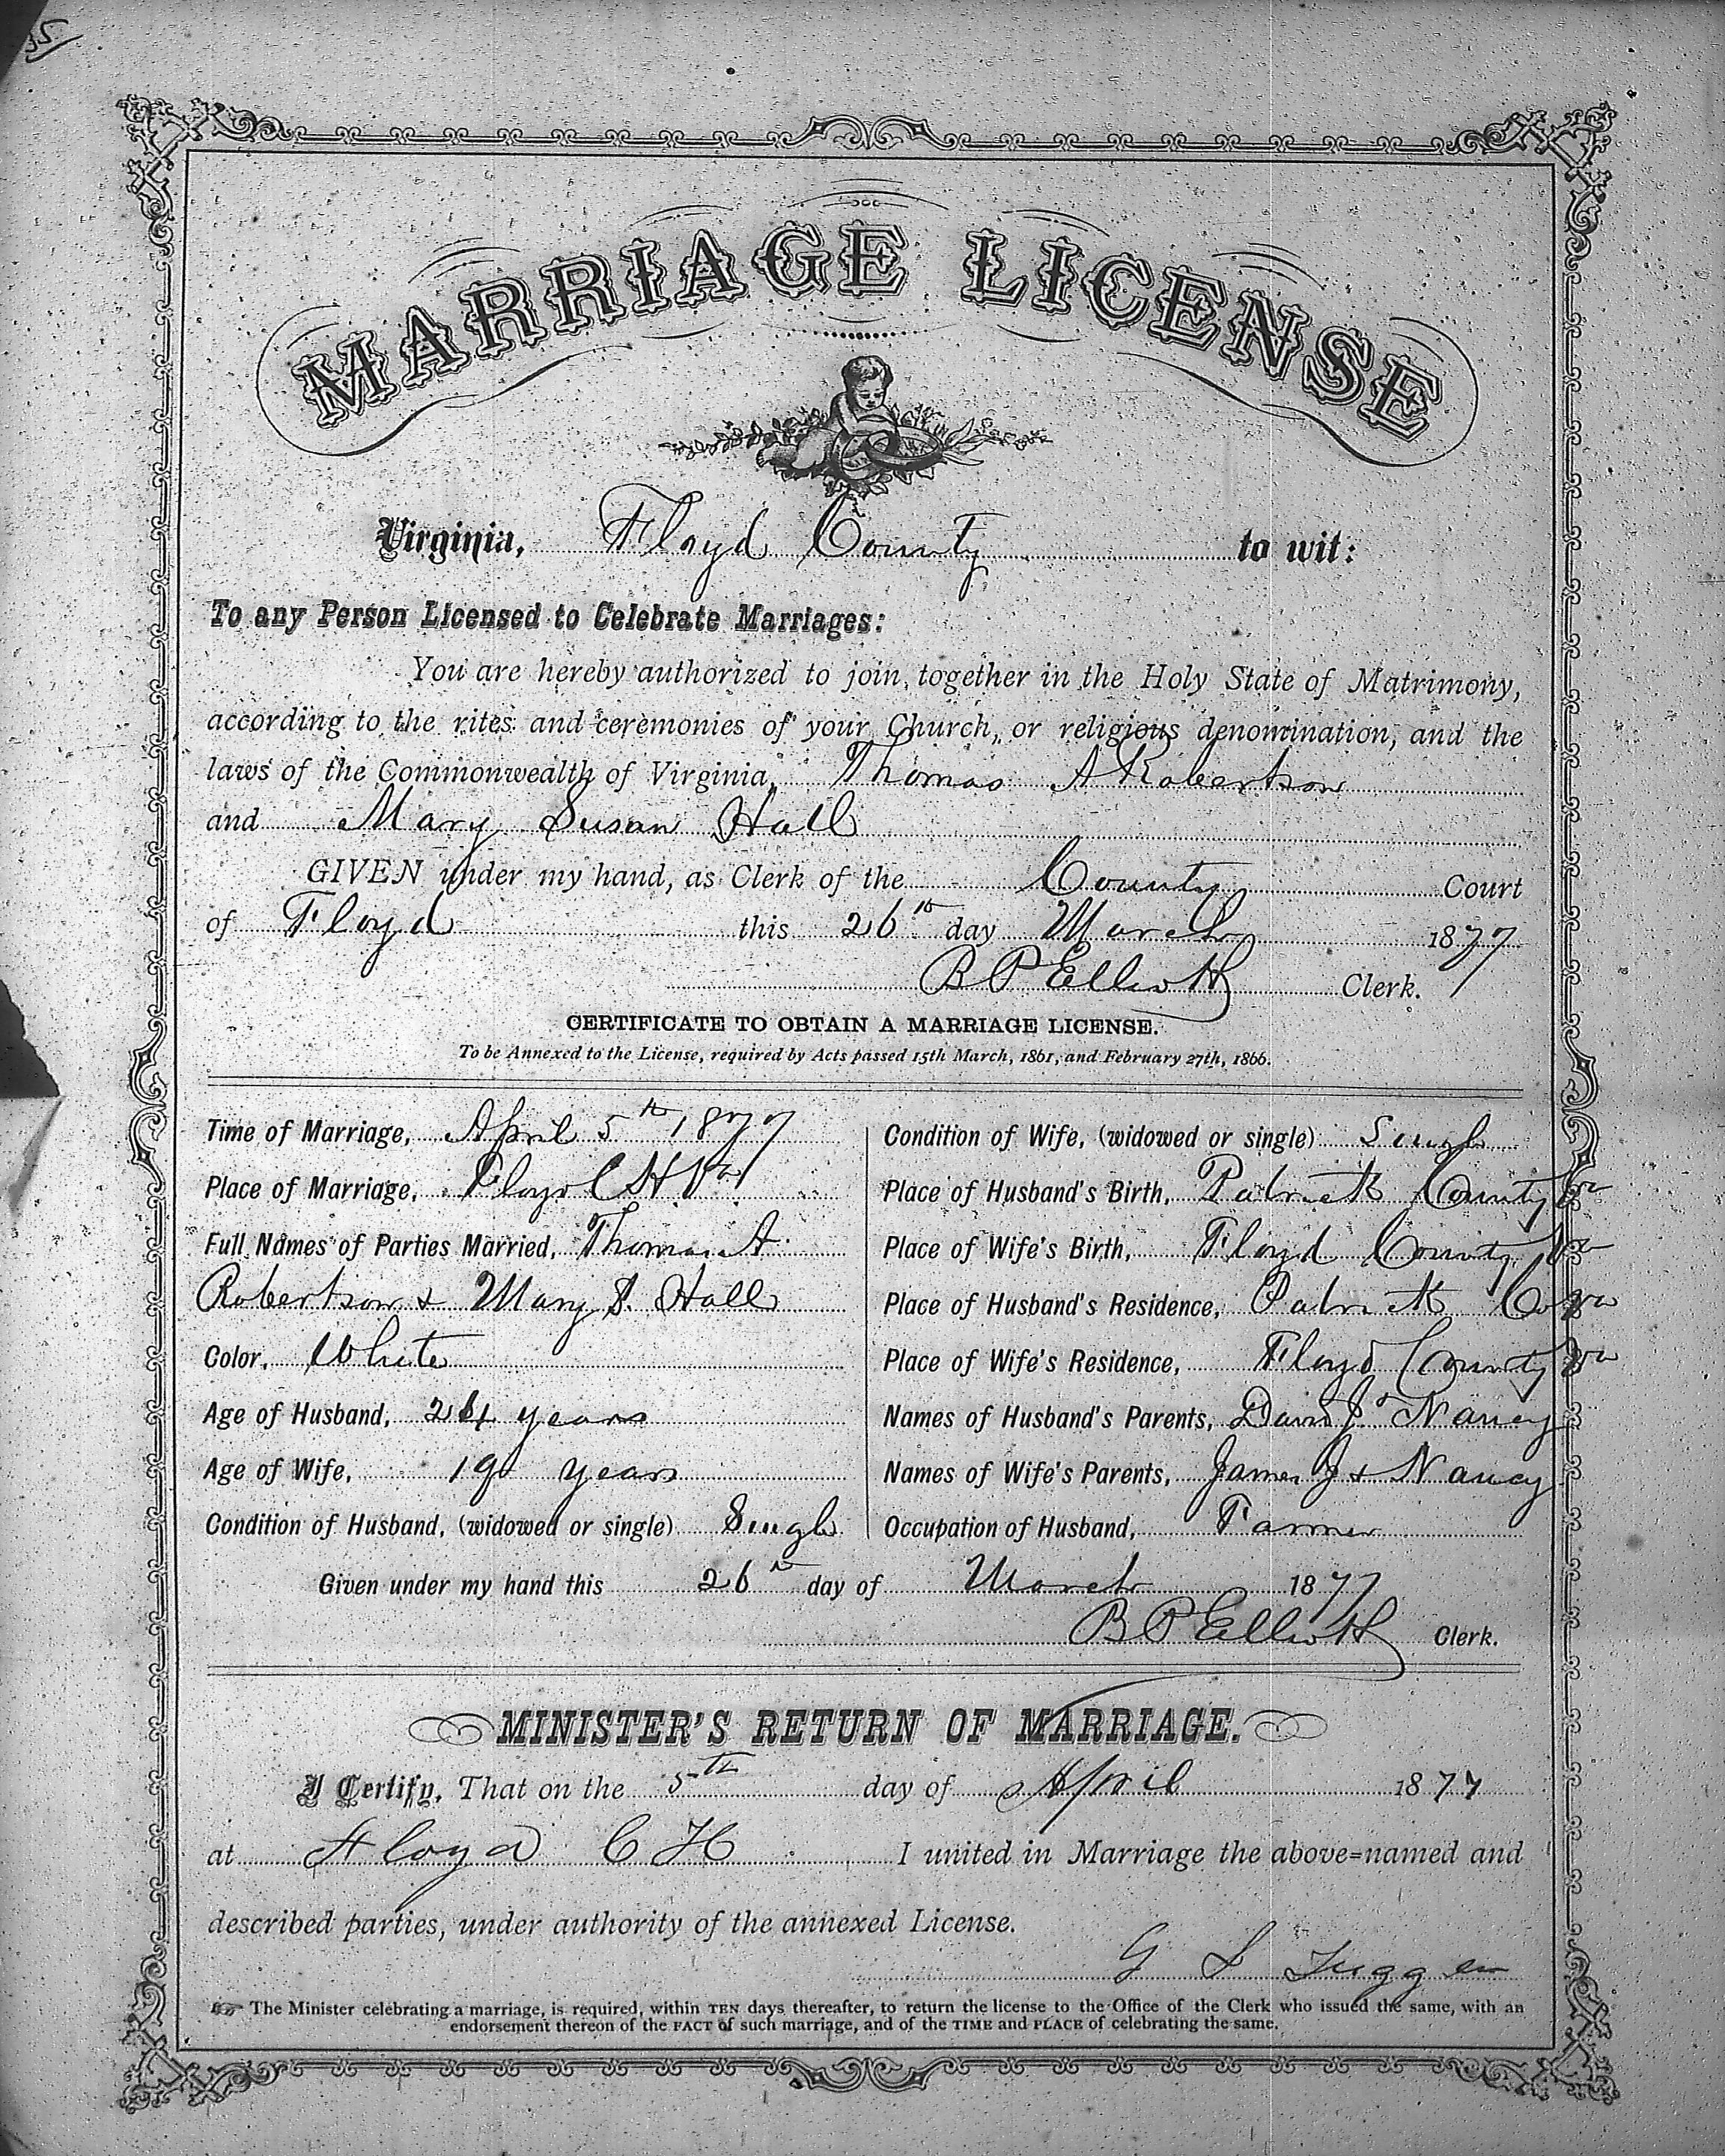 35
MARRIAGE LICENSE
Virginia, Floyd County to wit:
To any Person Licensed to Celebrate Marriages:
You are hereby authorized to join together in the Holy State of Matrimony,
according to the rites and ceremonies of your Church, or religious denomination, and the
laws of the Commonwealth of Virginia, Thomas A Robertson
and Mary Susan Hall
GIVEN under my hand, as Clerk of the County Court
of Floyd this 26th day March 1877
B P Elliott Clerk.
CERTIFICATE TO OBTAIN A MARRIAGE LICENSE.
To be Annexed to the License, required by Acts passed 15th March, 1861, and February 27th, 1866.
Time of Marriage, April 5th 1877
Place of Marriage, Floyd C H Va
Full Names of Parties Married, Thomas A.
Robertson & Mary S. Hall
Color, White
Age of Husband, 24 years
Age of Wife, 19 years
Condition of Husband, (widowed or single) Single
Condition of Wife, (widowed or single) Single
Place of Husband's Birth, Patrick County Va
Place of Wife's Birth, Floyd County Va
Place of Husband's Residence, Patrick Co Va
Place of Wife's Residence, Floyd County Va
Names of Husband's Parents, David J Nancy
Names of Wife's Parents, James J & Nancy
Occupation of Husband, Farmer
Given under my hand this 26th day of March 1877
B P Elliott Clerk.
MINISTER'S RETURN OF MARRIAGE.
I Certify, That on the 5th day of April 1877
at Floyd C H I united in Marriage the above=named and
described parties, under authority of the annexed License.
G
The Minister celebrating a marriage, is required, within TEN days thereafter, to return the license to the Office of the Clerk who issued the same, with an
endorsement thereon of the FACT of such marriage, and of the TIME and PLACE of celebrating the same.